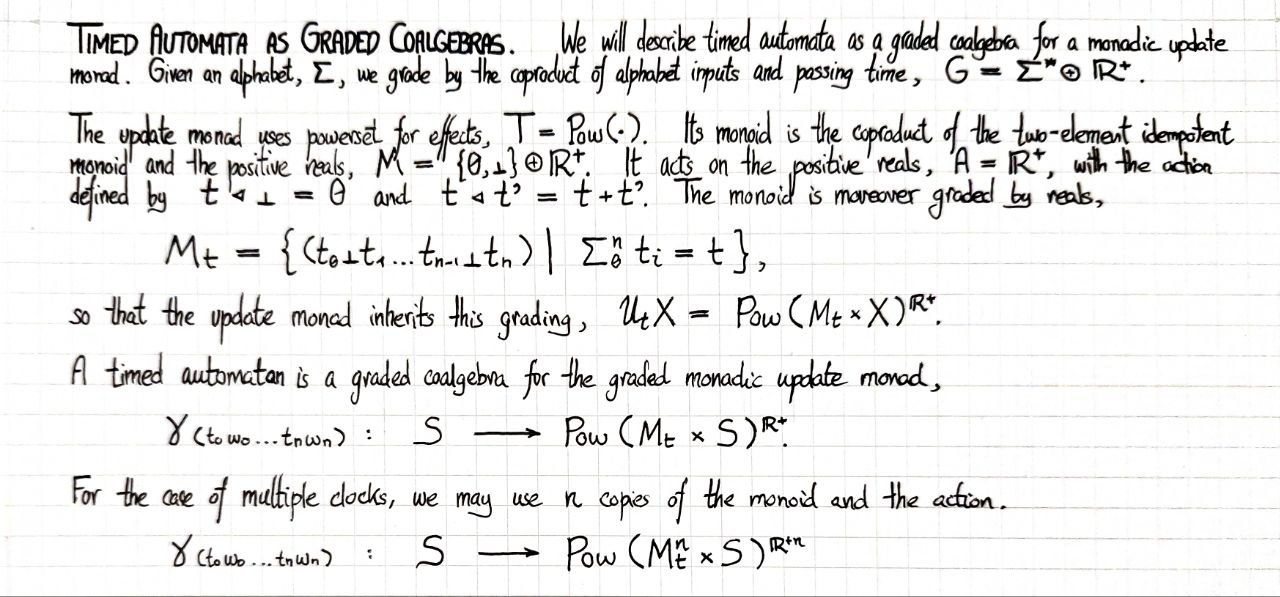 TIMED AUTOMATA AS GRADED COALGEBRAS. We will describe timed automata as a graded coalgebra for a monadic update
monad. Given an alphabet, Σ, we grade by the coproduct of alphabet inputs and passing time, G = Σ* ⊕ ℝ⁺.
The update monad uses powerset for effects, T = Pow(·). Its monoid is the coproduct of the two-element idempotent
monoid and the positive reals, M = {0,⊥} ⊕ ℝ⁺. It acts on the positive reals, A = ℝ⁺, with the action
defined by t ◁ ⊥ = 0 and t ◁ t' = t + t'. The monoid is moreover graded by reals,
M_t = { (t₀⊥t₁...t_{n-1}⊥t_n) | Σ₀ⁿ t_i = t },
so that the update monad inherits this grading, U_t X = Pow(M_t × X)^{ℝ⁺}.
A timed automaton is a graded coalgebra for the graded monadic update monad,
γ_{(t₀w₀...t_nw_n)} : S ⟶ Pow(M_t × S)^{ℝ⁺}.
For the case of multiple clocks, we may use n copies of the monoid and the action.
γ_{(t₀w₀...t_nw_n)} : S ⟶ Pow(M_t^n × S)^{ℝ^{+n}}